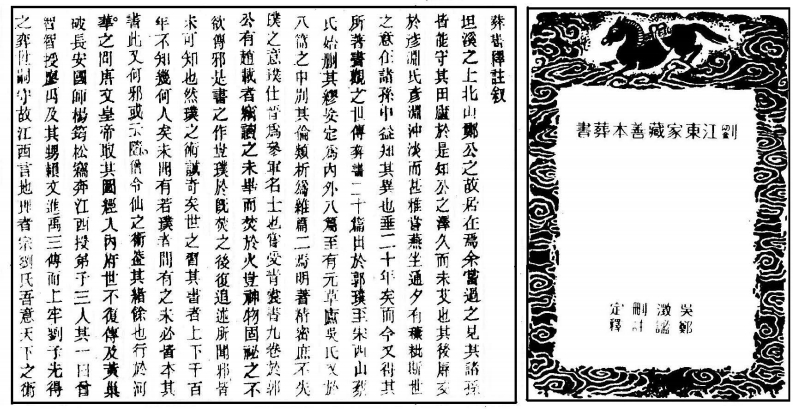 劉江東家藏善本葬書
吳澂刪定
鄭謐註釋
葬書釋註叙
坦溪之上北山鄭公之故居在焉余嘗過之見其諸孫
皆能守其田廬於是知公之澤久而未艾也其後屢交
於彥淵氏彥淵沖淡而甚雅嘗燕坐通夕有穢粃斯世
之意在諸孫中益知其異也垂二十年矣而今又得其
所著書觀之世傳葬書二十篇出於郭璞至宋西山蔡
氏始刪其繆妄定為內外八篇至有元草廬吳氏又於
八篇之中別其倫類析為雜篇二焉明著精密庶不失
璞之意璞仕晉為參軍名士也嘗受青囊書九卷於郭
公有趙載者竊讀之未畢而焚於火豈神物固祕之不
欲傳邪是書之作豈璞於既焚之後復追述所聞邪皆
未可知也然璞之術誠奇矣世之習其書者上下千百
年不知幾何人矣未聞有若璞者間有之未必皆本其
書此又何邪或云隋僧令仙之術蓋其緒餘也行於河
華之間唐文皇帝取其圖經入內府世不復傳及黃巢
破長安國師楊筠松竄奔江西授弟子三人其一曰曾
智智授廖瑀及其甥賴文進瑀三傳而上牢劉子先得
之奕世嗣守故江西言地理者宗劉氏吾意天下之術